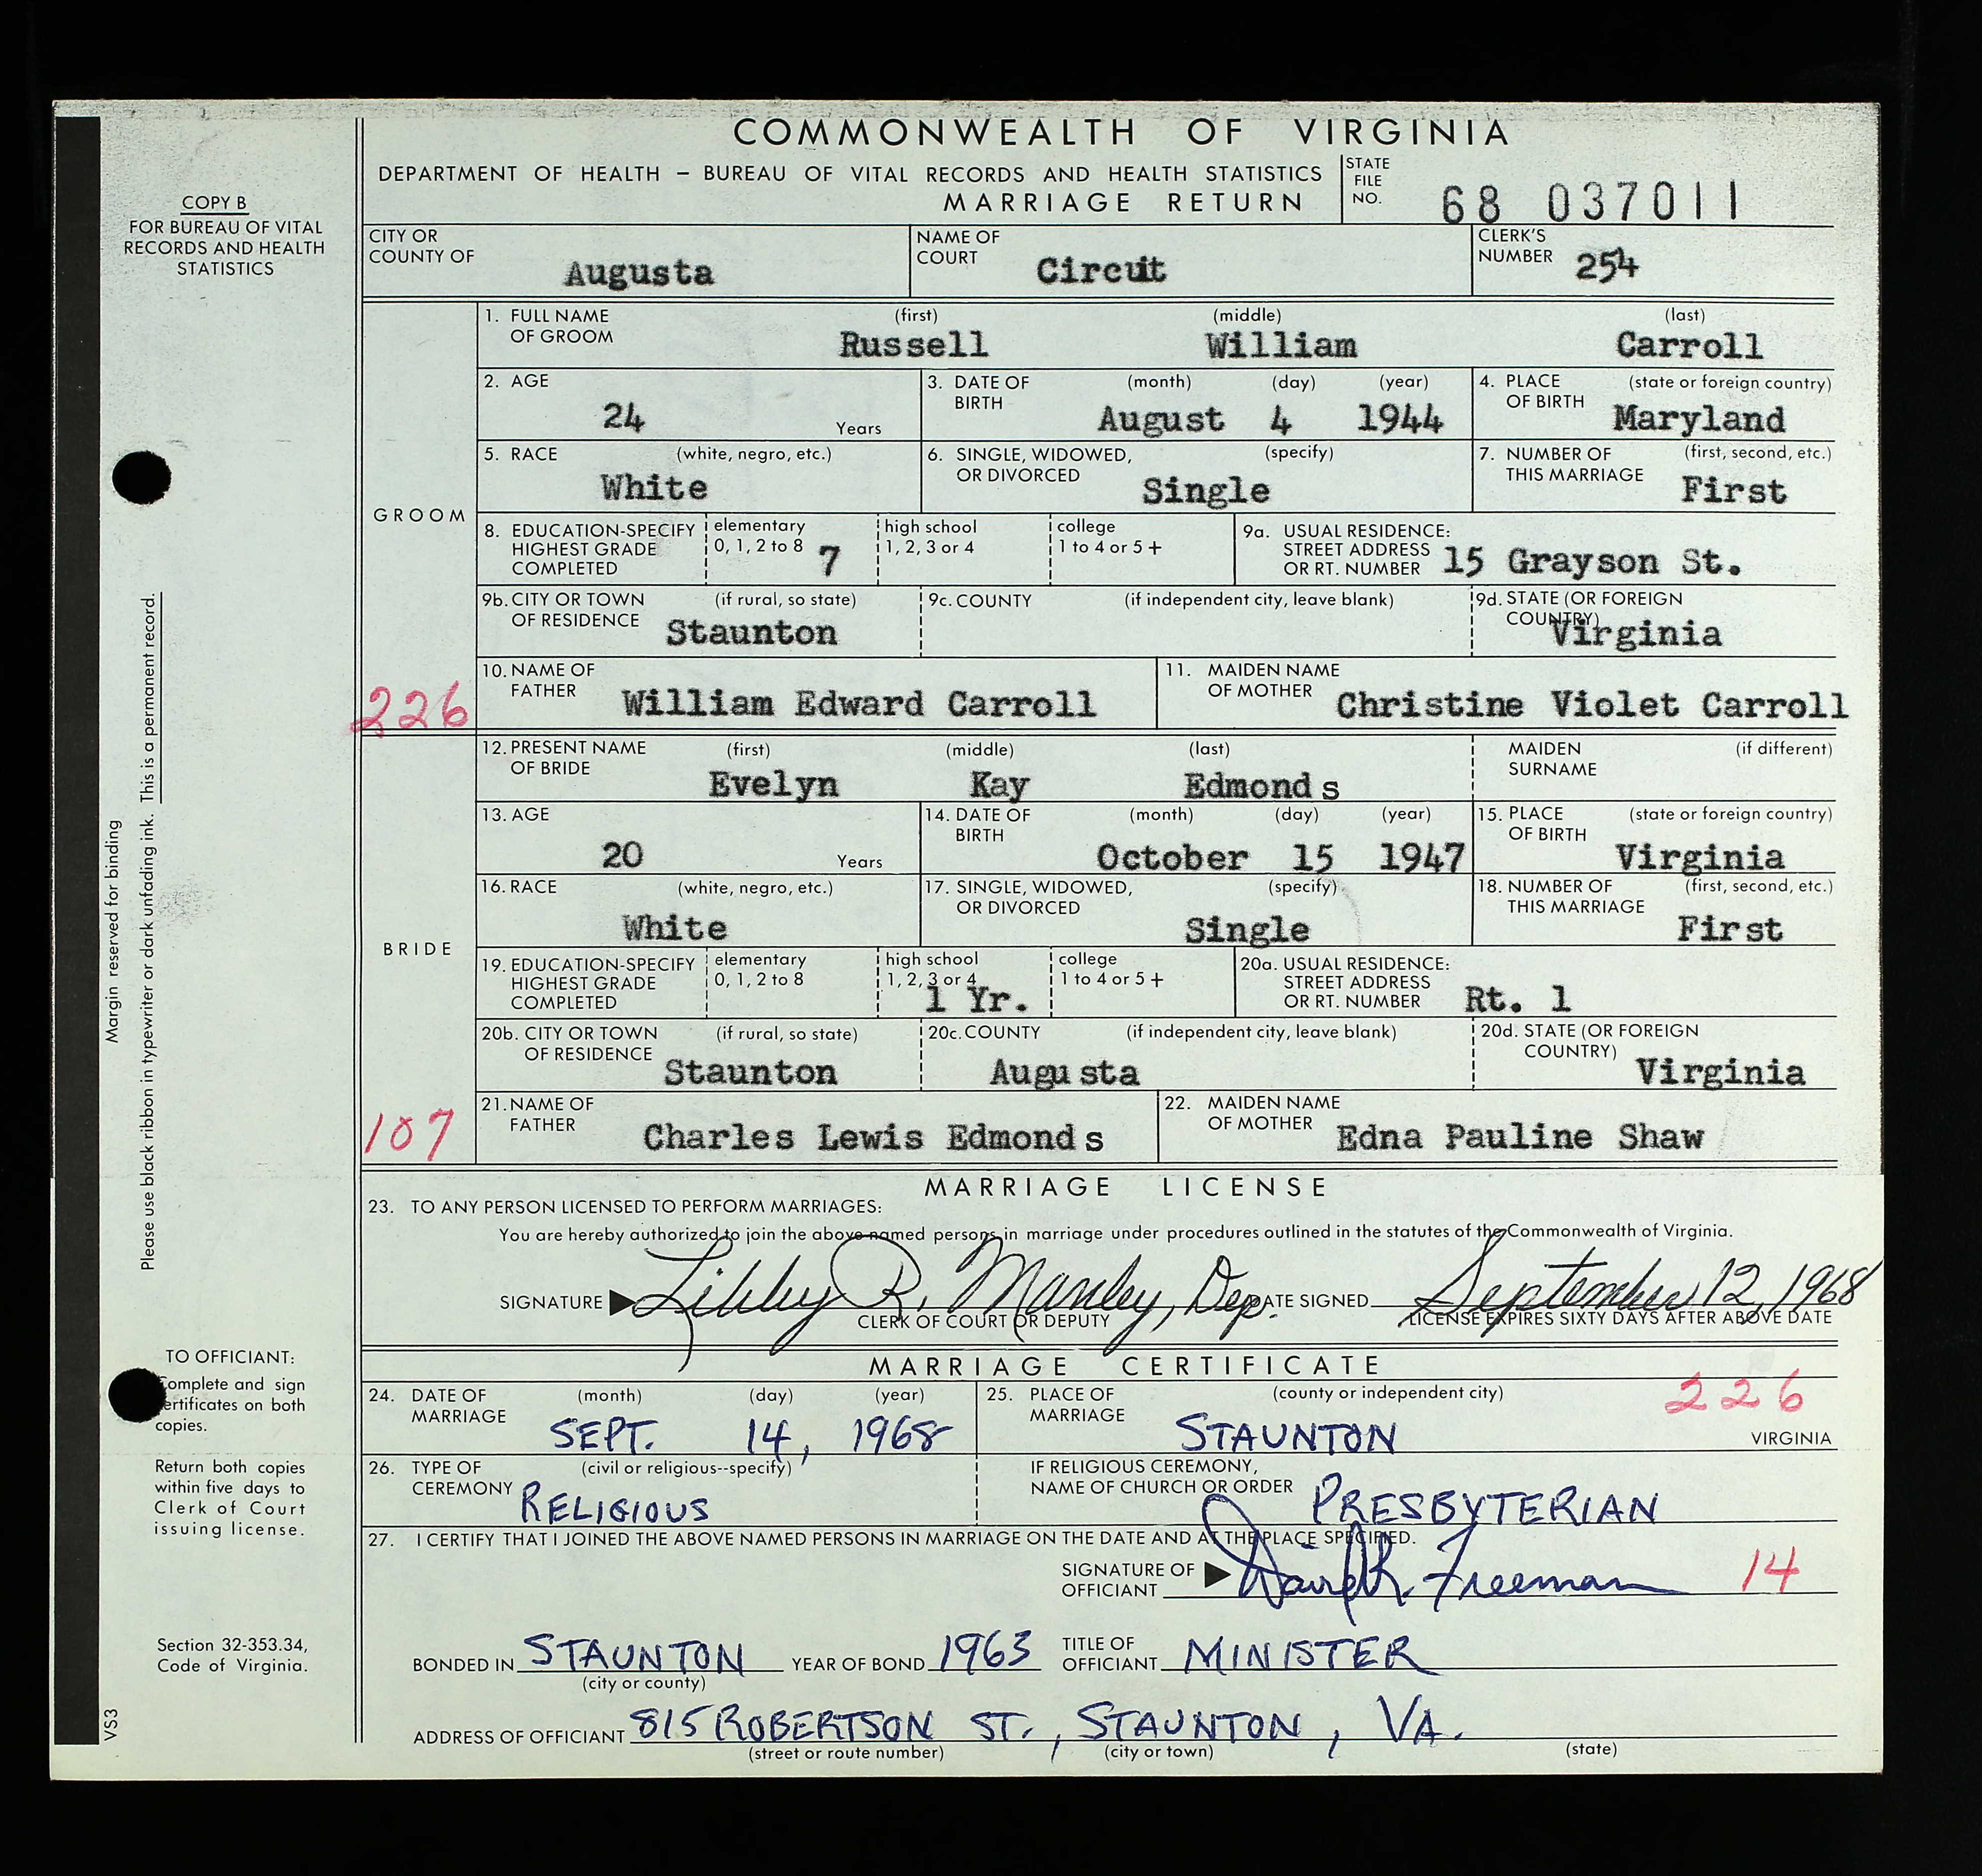 COMMONWEALTH OF VIRGINIA
DEPARTMENT OF HEALTH – BUREAU OF VITAL RECORDS AND HEALTH STATISTICS
MARRIAGE RETURN
STATE FILE NO. 68 037011
COPY B
FOR BUREAU OF VITAL
RECORDS AND HEALTH
STATISTICS
CITY OR COUNTY OF Augusta
NAME OF COURT Circuit
CLERK'S NUMBER 254
GROOM
1. FULL NAME OF GROOM (first) Russell (middle) William (last) Carroll
2. AGE 24 Years
3. DATE OF BIRTH (month) (day) (year) August 4 1944
4. PLACE OF BIRTH (state or foreign country) Maryland
5. RACE (white, negro, etc.) White
6. SINGLE, WIDOWED, OR DIVORCED (specify) Single
7. NUMBER OF THIS MARRIAGE (first, second, etc.) First
8. EDUCATION-SPECIFY HIGHEST GRADE COMPLETED elementary 0, 1, 2 to 8 7 high school 1, 2, 3 or 4 college 1 to 4 or 5+
9a. USUAL RESIDENCE: STREET ADDRESS OR RT. NUMBER 15 Grayson St.
9b. CITY OR TOWN OF RESIDENCE (if rural, so state) Staunton
9c. COUNTY (if independent city, leave blank)
9d. STATE (OR FOREIGN COUNTRY) Virginia
10. NAME OF FATHER William Edward Carroll
11. MAIDEN NAME OF MOTHER Christine Violet Carroll
226
BRIDE
12. PRESENT NAME OF BRIDE (first) Evelyn (middle) Kay (last) Edmonds
MAIDEN SURNAME (if different)
13. AGE 20 Years
14. DATE OF BIRTH (month) (day) (year) October 15 1947
15. PLACE OF BIRTH (state or foreign country) Virginia
16. RACE (white, negro, etc.) White
17. SINGLE, WIDOWED, OR DIVORCED (specify) Single
18. NUMBER OF THIS MARRIAGE (first, second, etc.) First
19. EDUCATION-SPECIFY HIGHEST GRADE COMPLETED elementary 0, 1, 2 to 8 high school 1, 2, 3 or 4 1 Yr. college 1 to 4 or 5+
20a. USUAL RESIDENCE: STREET ADDRESS OR RT. NUMBER Rt. 1
20b. CITY OR TOWN OF RESIDENCE (if rural, so state) Staunton
20c. COUNTY (if independent city, leave blank) Augusta
20d. STATE (OR FOREIGN COUNTRY) Virginia
21. NAME OF FATHER Charles Lewis Edmonds
22. MAIDEN NAME OF MOTHER Edna Pauline Shaw
107
MARRIAGE LICENSE
23. TO ANY PERSON LICENSED TO PERFORM MARRIAGES:
You are hereby authorized to join the above named persons in marriage under procedures outlined in the statutes of the Commonwealth of Virginia.
SIGNATURE Libby R. Manley, Dep. DATE SIGNED September 12, 1968
CLERK OF COURT OR DEPUTY
LICENSE EXPIRES SIXTY DAYS AFTER ABOVE DATE
MARRIAGE CERTIFICATE
24. DATE OF MARRIAGE (month) (day) (year) SEPT. 14, 1968
25. PLACE OF MARRIAGE (county or independent city) STAUNTON 226 VIRGINIA
26. TYPE OF CEREMONY (civil or religious--specify) RELIGIOUS
IF RELIGIOUS CEREMONY, NAME OF CHURCH OR ORDER PRESBYTERIAN
27. I CERTIFY THAT I JOINED THE ABOVE NAMED PERSONS IN MARRIAGE ON THE DATE AND AT THE PLACE SPECIFIED.
SIGNATURE OF OFFICIANT Freeman 14
BONDED IN STAUNTON (city or county) YEAR OF BOND 1963 TITLE OF OFFICIANT MINISTER
ADDRESS OF OFFICIANT 815 ROBERTSON ST., STAUNTON, VA.
(street or route number) (city or town) (state)
Margin reserved for binding
Please use black ribbon in typewriter or dark unfading ink. This is a permanent record.
TO OFFICIANT:
Complete and sign
certificates on both
copies.
Return both copies
within five days to
Clerk of Court
issuing license.
Section 32-353.34,
Code of Virginia.
VS3